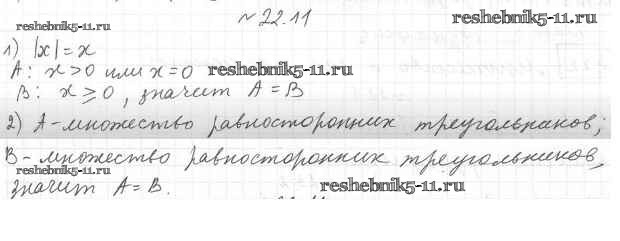 № 22.11
reshebnik5-11.ru
reshebnik5-11.ru
1) |x| = x
A: x > 0 или x = 0 reshebnik5-11.ru
B: x ⩾ 0, значит A = B
2) A - множество равносторонних треугольников;
B - множество равносторонних треугольников,
reshebnik5-11.ru
значит A = B.
reshebnik5-11.ru